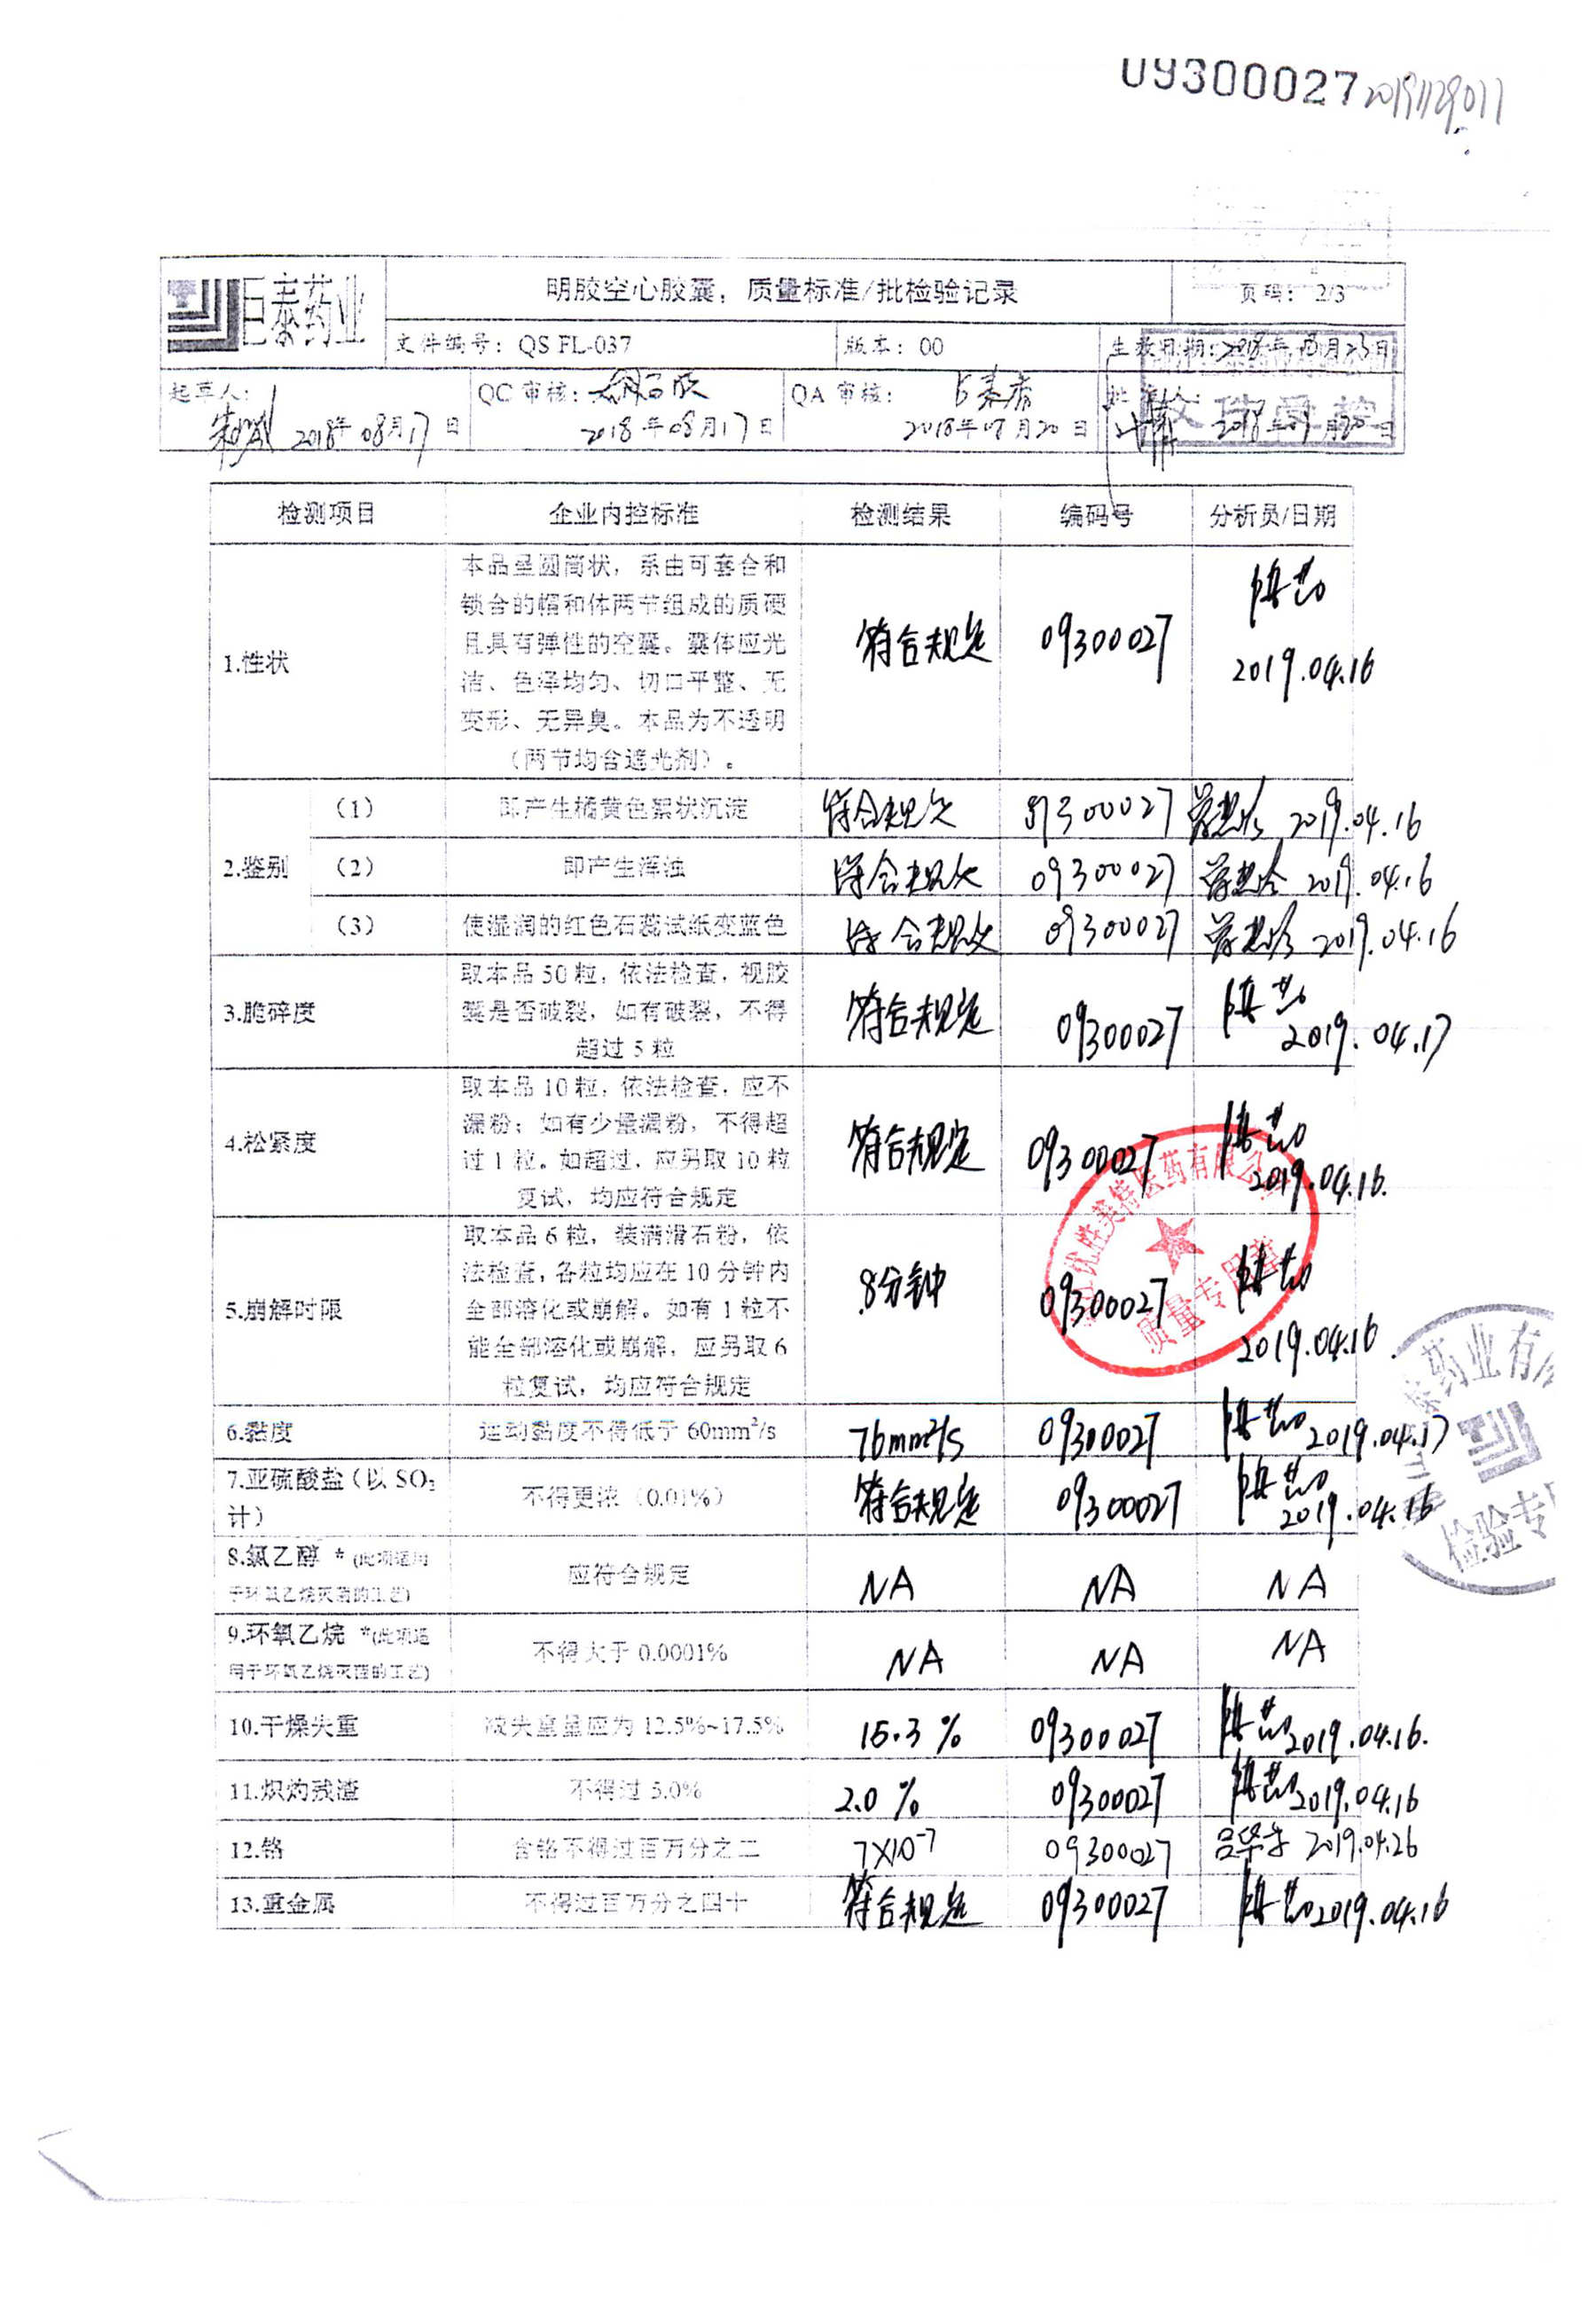 09300027 20191129011
巨泰药业
明胶空心胶囊，质量标准/批检验记录
页码：2/3
文件编号：QS FL-037
版本：00
生效日期：2018年 月23日
起草人：
QC 审核：
QA 审核：
批准人：
2018年08月17日
2018年08月17日
2018年 月20日
检测项目 企业内控标准 检测结果 编码号 分析员/日期
1.性状
本品呈圆筒状，系由可套合和
锁合的帽和体两节组成的质硬
且具有弹性的空囊。囊体应光
洁、色泽均匀、切口平整、无
变形、无异臭。本品为不透明
（两节均含遮光剂）。
符合规定 09300027
2019.04.16
2.鉴别
（1） 即产生橘黄色絮状沉淀 符合规定 09300027 2019.04.16
（2） 即产生浑浊 符合规定 09300027 2019.04.16
（3） 使湿润的红色石蕊试纸变蓝色 符合规定 09300027 2019.04.16
3.脆碎度
取本品 50 粒，依法检查，视胶
囊是否破裂，如有破裂，不得
超过 5 粒
符合规定 09300027
2019.04.17
4.松紧度
取本品 10 粒，依法检查，应不
漏粉；如有少量漏粉，不得超
过 1 粒。如超过，应另取 10 粒
复试，均应符合规定
符合规定 09300027
2019.04.16.
5.崩解时限
取本品 6 粒，装满滑石粉，依
法检查，各粒均应在 10 分钟内
全部溶化或崩解。如有 1 粒不
能全部溶化或崩解，应另取 6
粒复试，均应符合规定
8分钟 09300027
2019.04.16.
优胜美特医药有限公司
质量专用章
6.黏度 运动黏度不得低于 60mm²/s 76mm²/s 09300027 2019.04.17
药业有
检验专
7.亚硫酸盐（以 SO₂
计）
不得更浓（0.01%） 符合规定 09300027
2019.04.16
8.氯乙醇 *(此项适用
于环氧乙烷灭菌的工艺)
应符合规定 NA NA NA
9.环氧乙烷 *(此项适
用于环氧乙烷灭菌的工艺)
不得大于 0.0001% NA NA NA
10.干燥失重 减失重量应为 12.5%~17.5% 15.3% 09300027 2019.04.16.
11.炽灼残渣 不得过 5.0% 2.0% 09300027 2019.04.16
12.铬 含铬不得过百万分之二 7×10⁻⁷ 09300027 2019.04.26
13.重金属 不得过百万分之四十 符合规定 09300027 2019.04.16